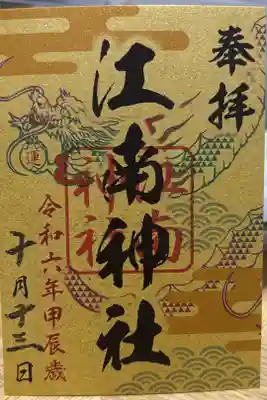 奉拝
江南神社
江南
神社
令和六年甲辰歳
十月十三日
運